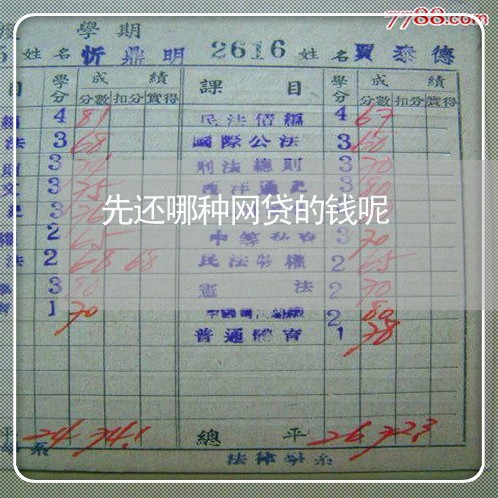 7788.com
學期
姓名 忻鼎明 2616 姓名 賈泰德
目 學分 成績 課目 學分 成績
分數 扣分 實得 分數 扣分 實得
4 81 民法債編 4 67
法 3 68 國際公法 3 60
3 刑法總則 3 70
3 75 西洋通史 3 80
先还哪种网贷的钱呢
2 65 3 70
法 2 68 68 民法物權 2 65
3 80 憲法 2 70
1 70 2 80
普通體育 1 78
平 24 74.1 總平 26 72.3
系 法律學系